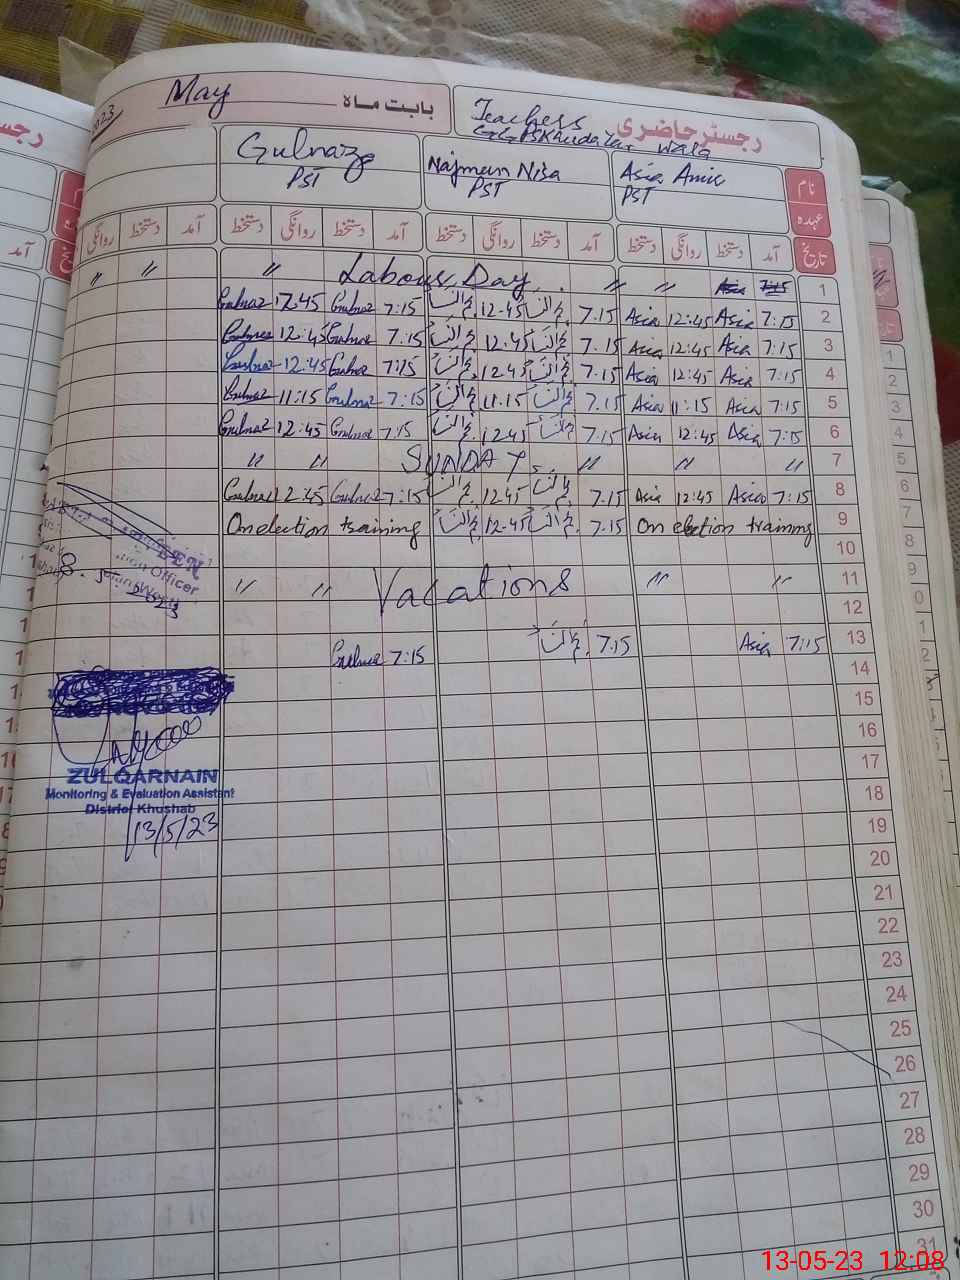 2023 May بابت ماہ Teachers رجسٹر حاضری
GGPS Khuda Yar Wala
Gulnaz Najmun Nisa Asia Amir نام
PST PST PST عہدہ
روانگی دستخط آمد دستخط روانگی دستخط آمد دستخط روانگی دستخط آمد دستخط روانگی دستخط آمد تاریخ
" " " Labour Day . " " Asia 7:15 1
Gulnaz 12.45 Gulnaz 7:15 12-45 7.15 Asia 12:45 Asia 7:15 2
Gulnaz 12:45 Gulnaz 7:15 12.45 7.15 Asia 12:45 Asia 7:15 3
Gulnaz 12:45 Gulnaz 7:15 12.45 7.15 Asia 12:45 Asia 7:15 4
Gulnaz 11:15 Gulnaz 7:15 11.15 7.15 Asia 11:15 Asia 7:15 5
Gulnaz 12:45 Gulnaz 7:15 12.45 7.15 Asia 12:45 Asia 7:15 6
" " SUNDAY " " " 7
Gulnaz 12:45 Gulnaz 7:15 12.45 7.15 Asia 12:45 Asia 7:15 8
On election training 12-45 7.15 On election training 9
10
" " Vacations " " 11
12
Gulnaz 7:15 7.15 Asia 7:15 13
14
15
16
17
18
19
20
21
22
23
24
25
26
27
28
29
30
31
Officer
8.5.2023
ZULQARNAIN
Monitoring & Evaluation Assistant
District Khushab
13/5/23
13-05-23 12:08